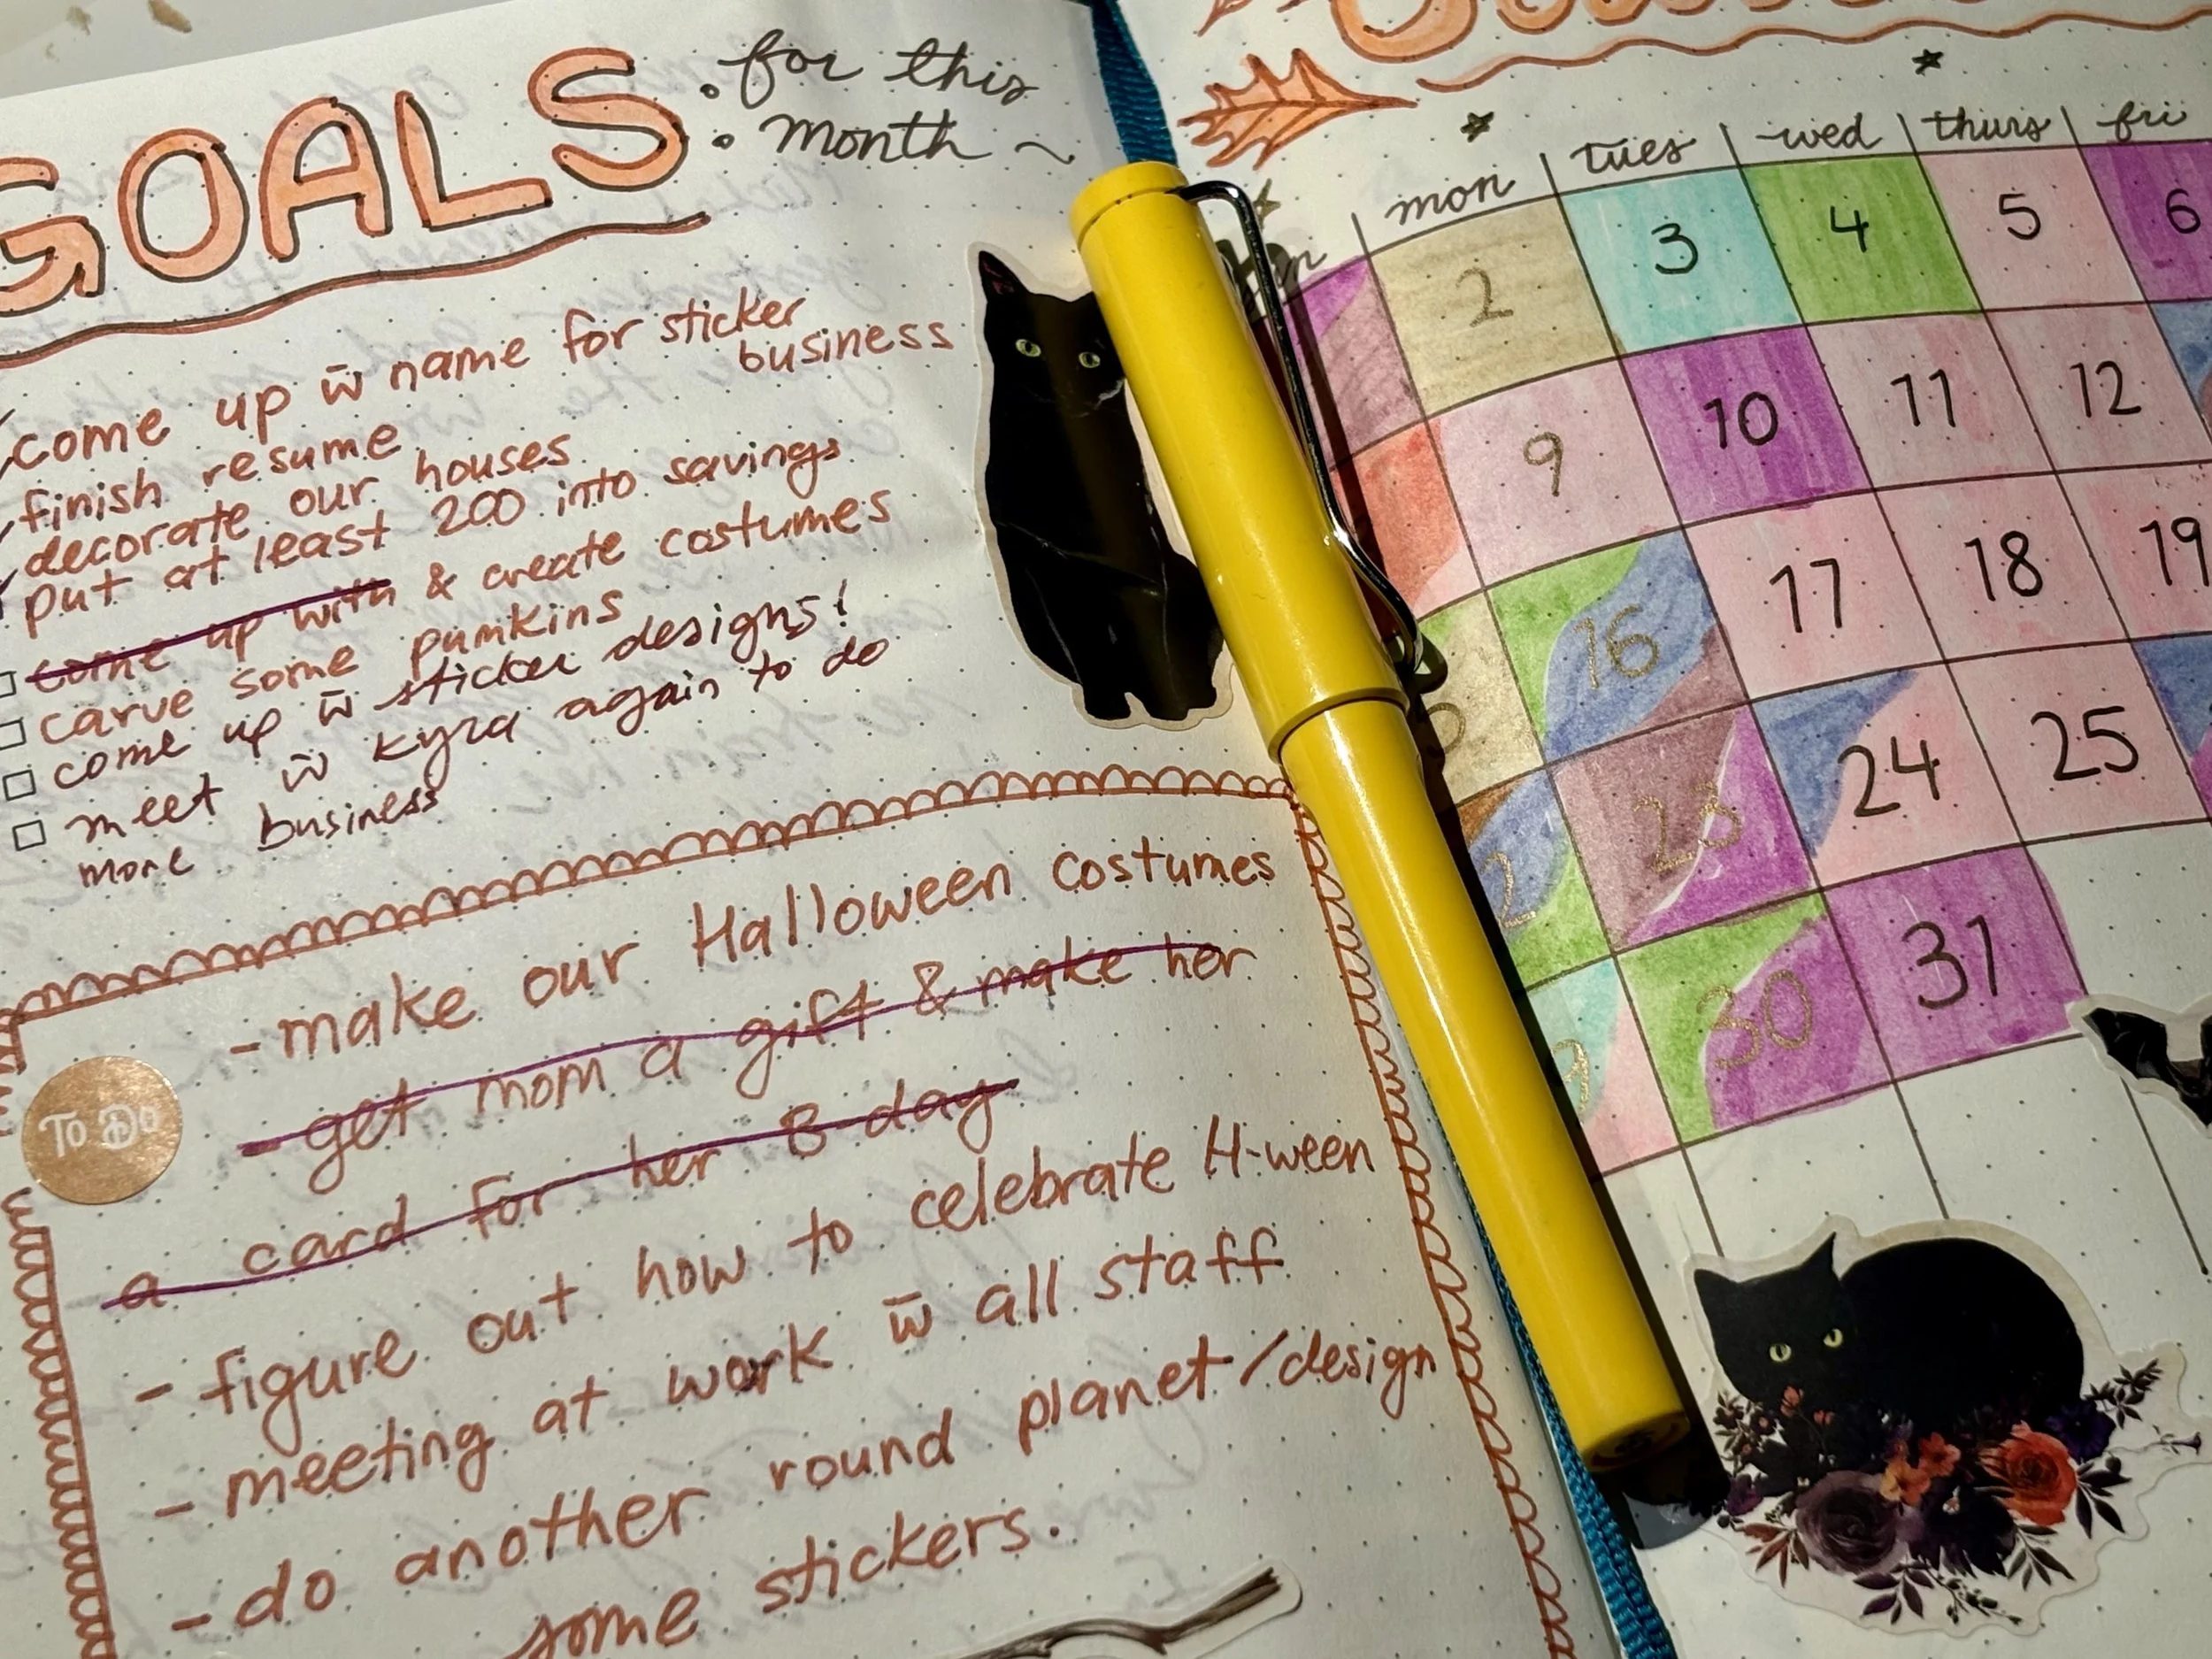 GOALS: for this
month ~
come up w̄ name for sticker
business
finish resume
decorate our houses
put at least 200 into savings
come up with & create costumes
carve some pumkins
come up w̄ sticker designs!
meet w̄ kyra again to do
more business
To Do
- make our Halloween costumes
- get mom a gift & make her
a card for her B-day
- figure out how to celebrate H-ween
- meeting at work w̄ all staff
- do another round planet/design
some stickers.
mon tues wed thurs fri
2 3 4 5 6
9 10 11 12
16 17 18 19
23 24 25
30 31